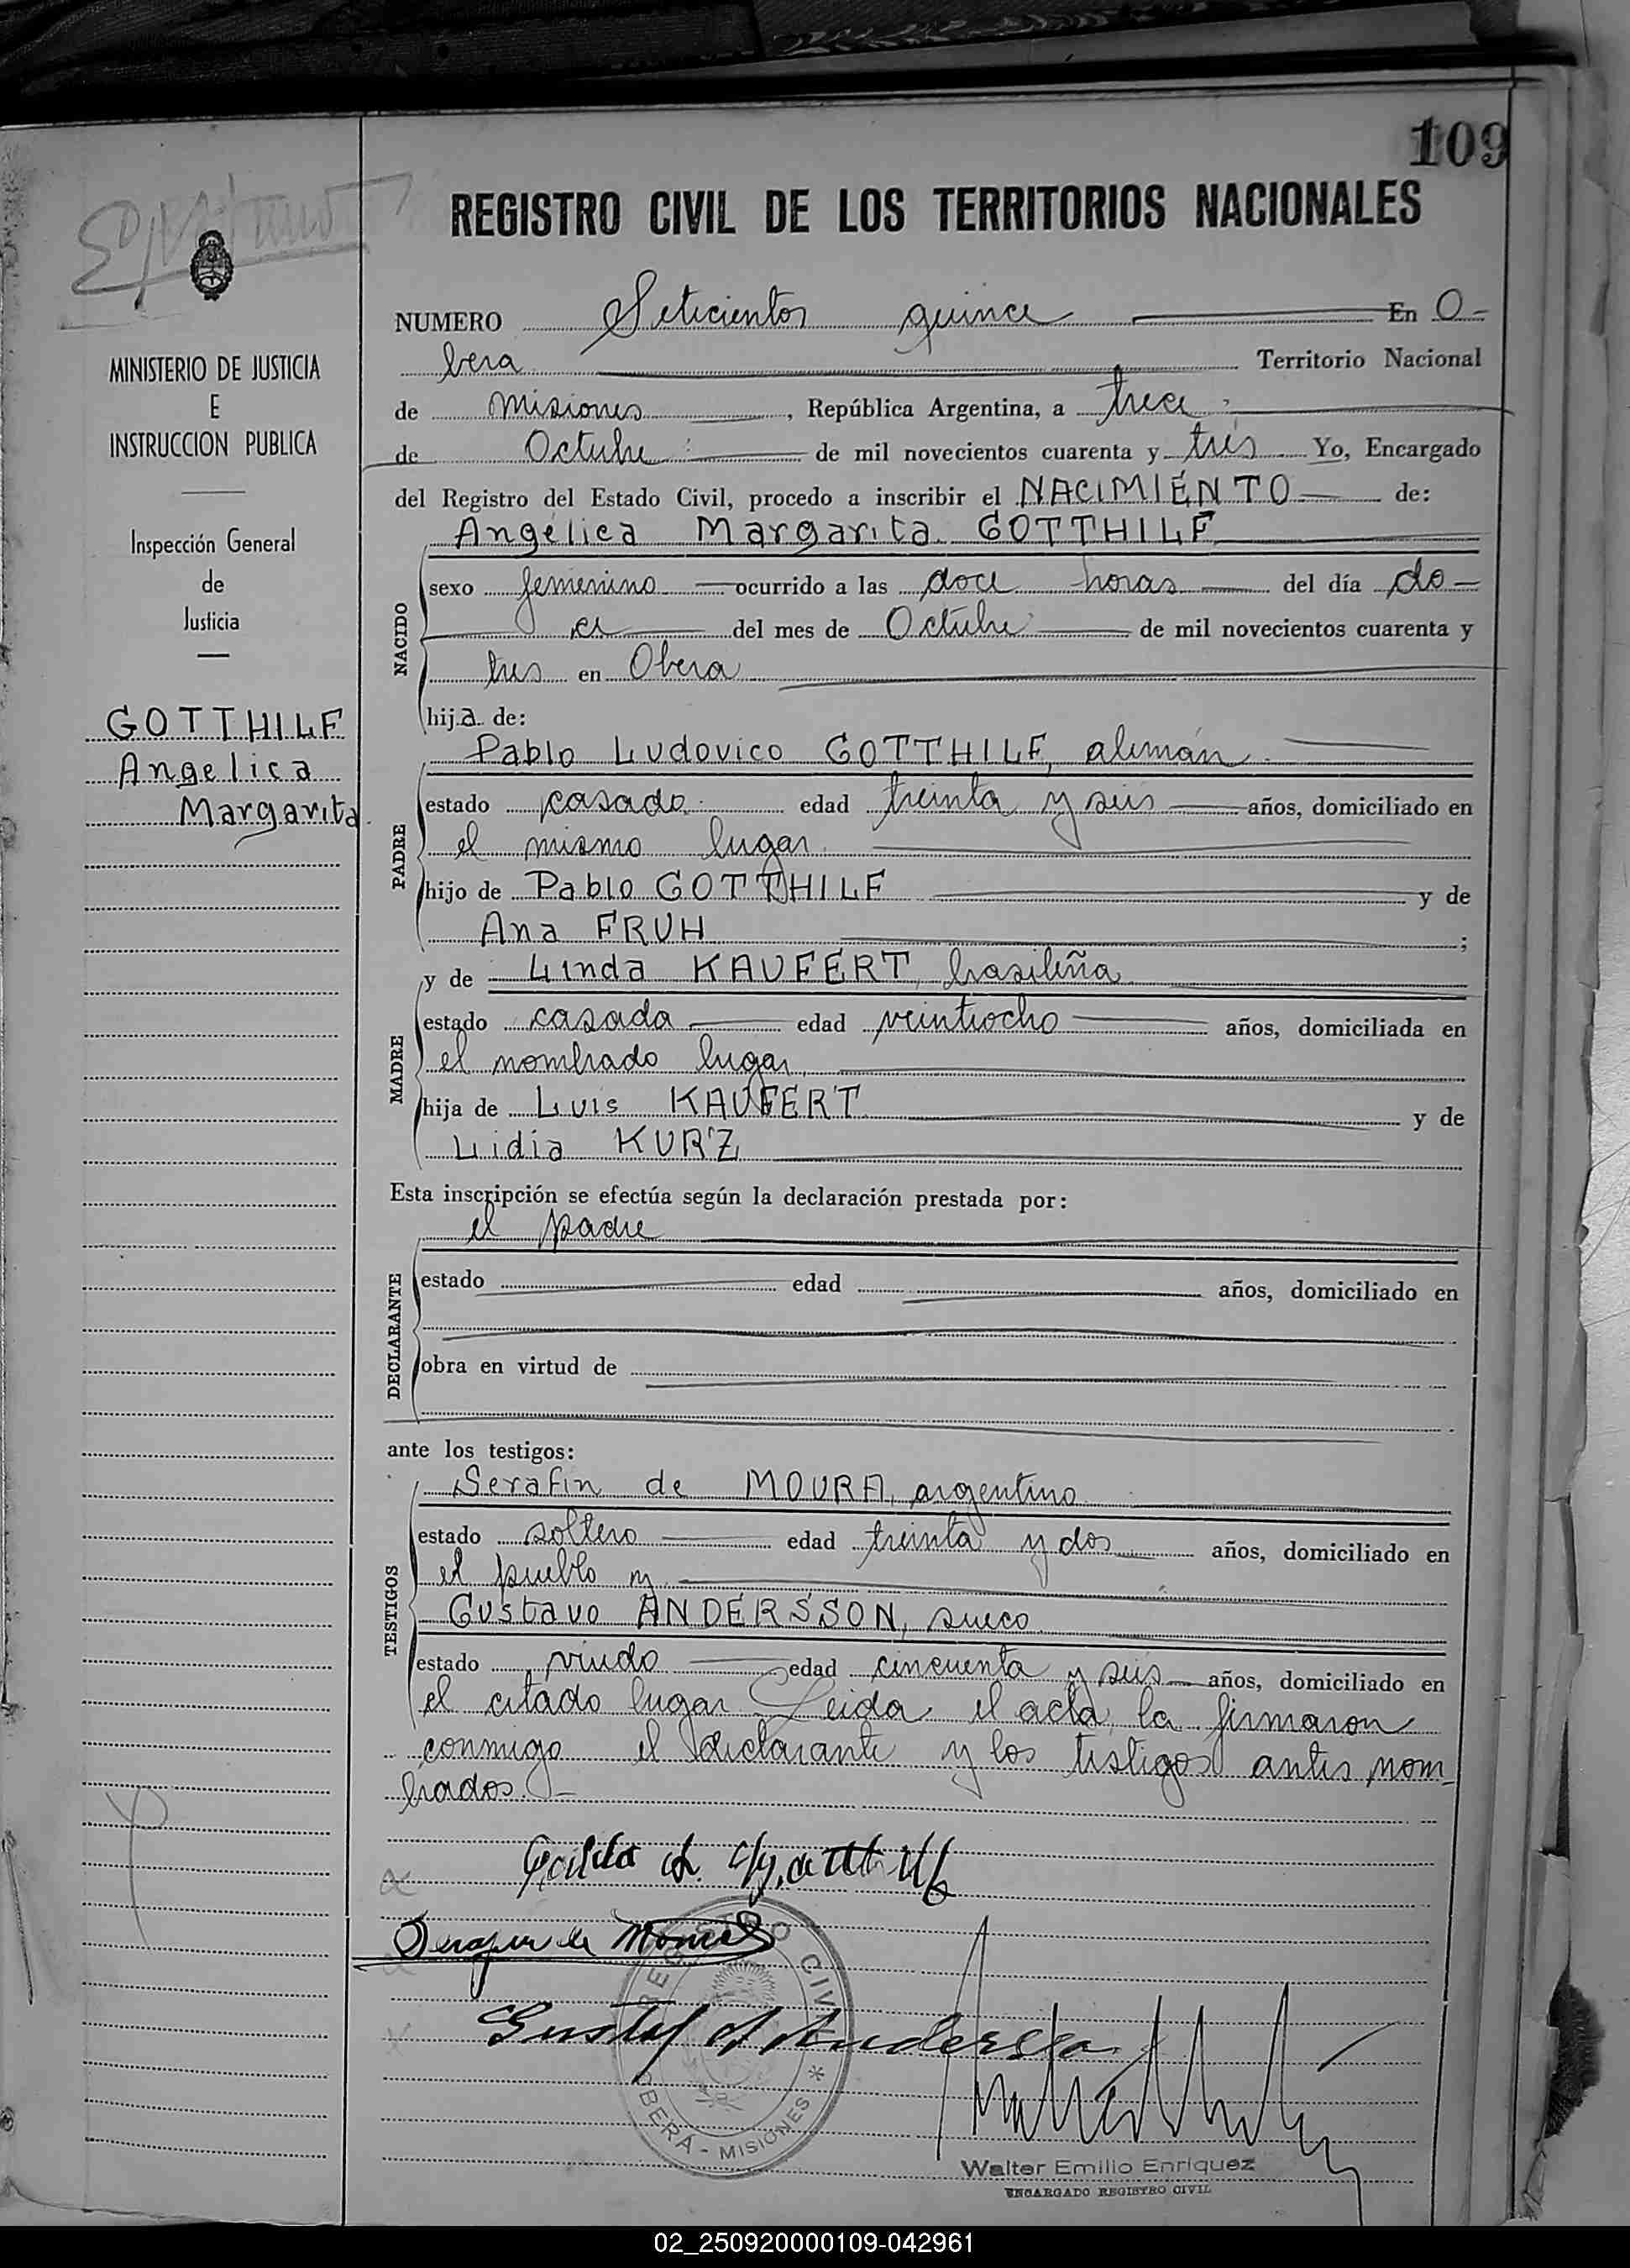 109
REGISTRO CIVIL DE LOS TERRITORIOS NACIONALES
NUMERO Seticientos quince En O-
bera Territorio Nacional
de Misiones, República Argentina, a trece
de Octubre de mil novecientos cuarenta y tres Yo, Encargado
del Registro del Estado Civil, procedo a inscribir el NACIMIENTO de:
Angélica Margarita GOTTHILF
NACIDO
sexo femenino ocurrido a las doce horas del día do-
ce del mes de Octubre de mil novecientos cuarenta y
tres en Obera
hija de:
Pablo Ludovico GOTTHILF, alemán
PADRE
estado casado edad treinta y seis años, domiciliado en
el mismo lugar
hijo de Pablo GOTTHILF y de
Ana FRUH ;
y de Linda KAUFERT, brasileña
MADRE
estado casada edad veintiocho años, domiciliada en
el nombrado lugar
hija de Luis KAUFERT y de
Lidia KURZ
Esta inscripción se efectúa según la declaración prestada por:
el padre
DECLARANTE
estado edad años, domiciliado en
obra en virtud de
ante los testigos:
Serafin de MOURA, argentino
TESTIGOS
estado soltero edad treinta y dos años, domiciliado en
el pueblo y
Gustavo ANDERSSON, sueco
estado viudo edad cincuenta y seis años, domiciliado en
el citado lugar Leida el acta, la firmaron
conmigo el declarante y los testigos antes nom-
brados.-
Gustaf A Andersson
REGISTRO CIVIL
OBERÁ - MISIONES *
Walter Emilio Enriquez
ENCARGADO REGISTRO CIVIL
MINISTERIO DE JUSTICIA
E
INSTRUCCION PUBLICA
Inspección General
de
Justicia
GOTTHILF
Angelica
Margarita
02_250920000109-042961